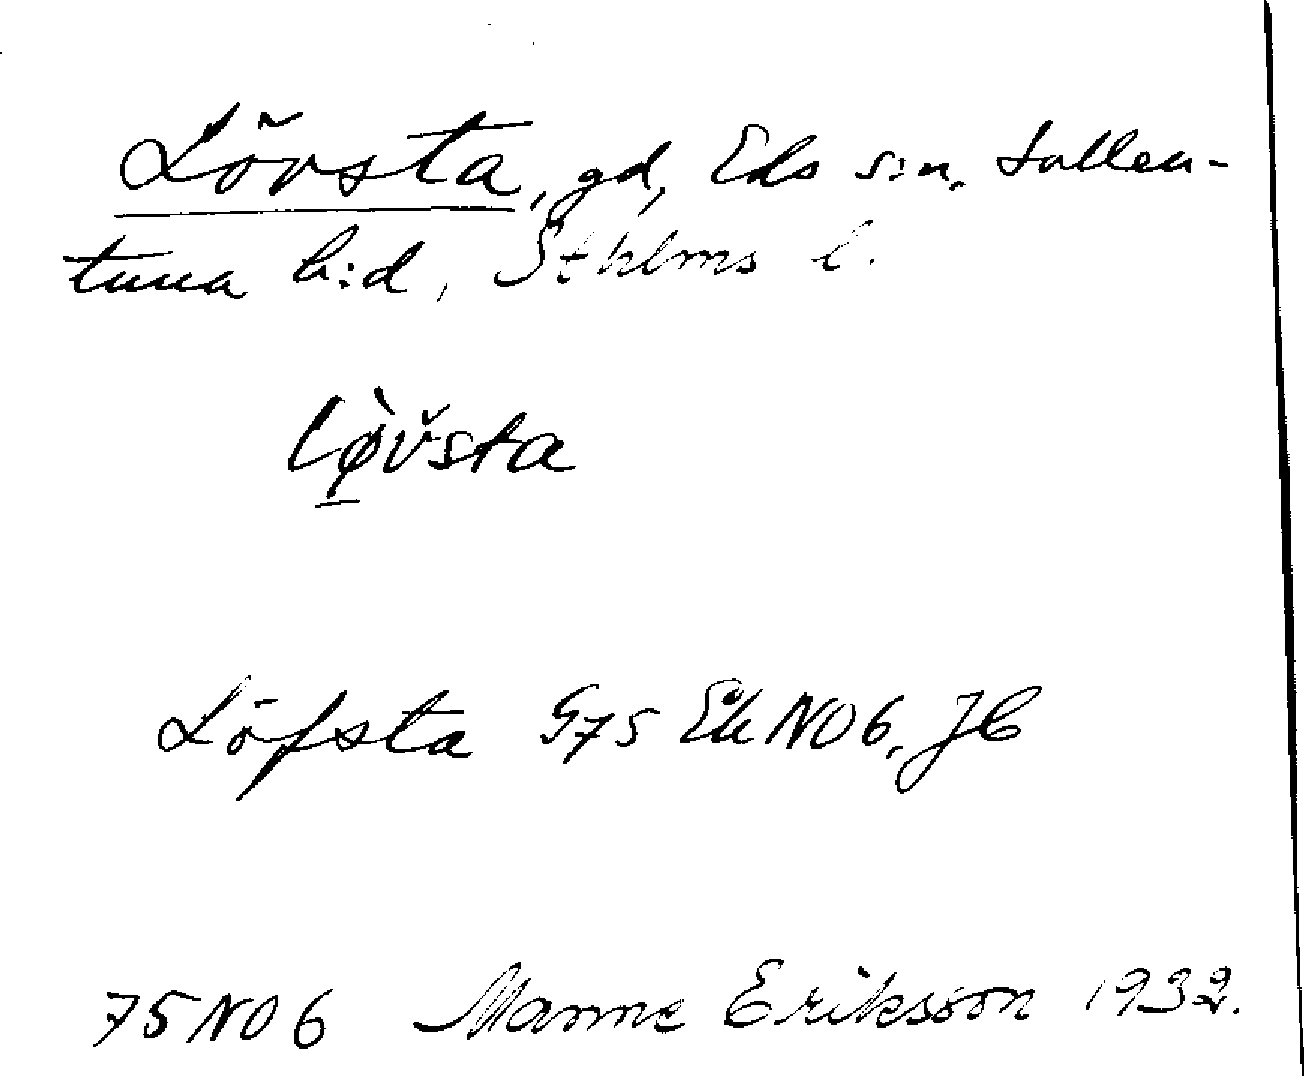 Lövsta, gd, Eds s:n, Sollen-
tuna h:d, Sthlms l.
lø̠̀v̌sta
Löfsta G75 Ek NO6, JC
75 NO 6 Manne Eriksson 1932.